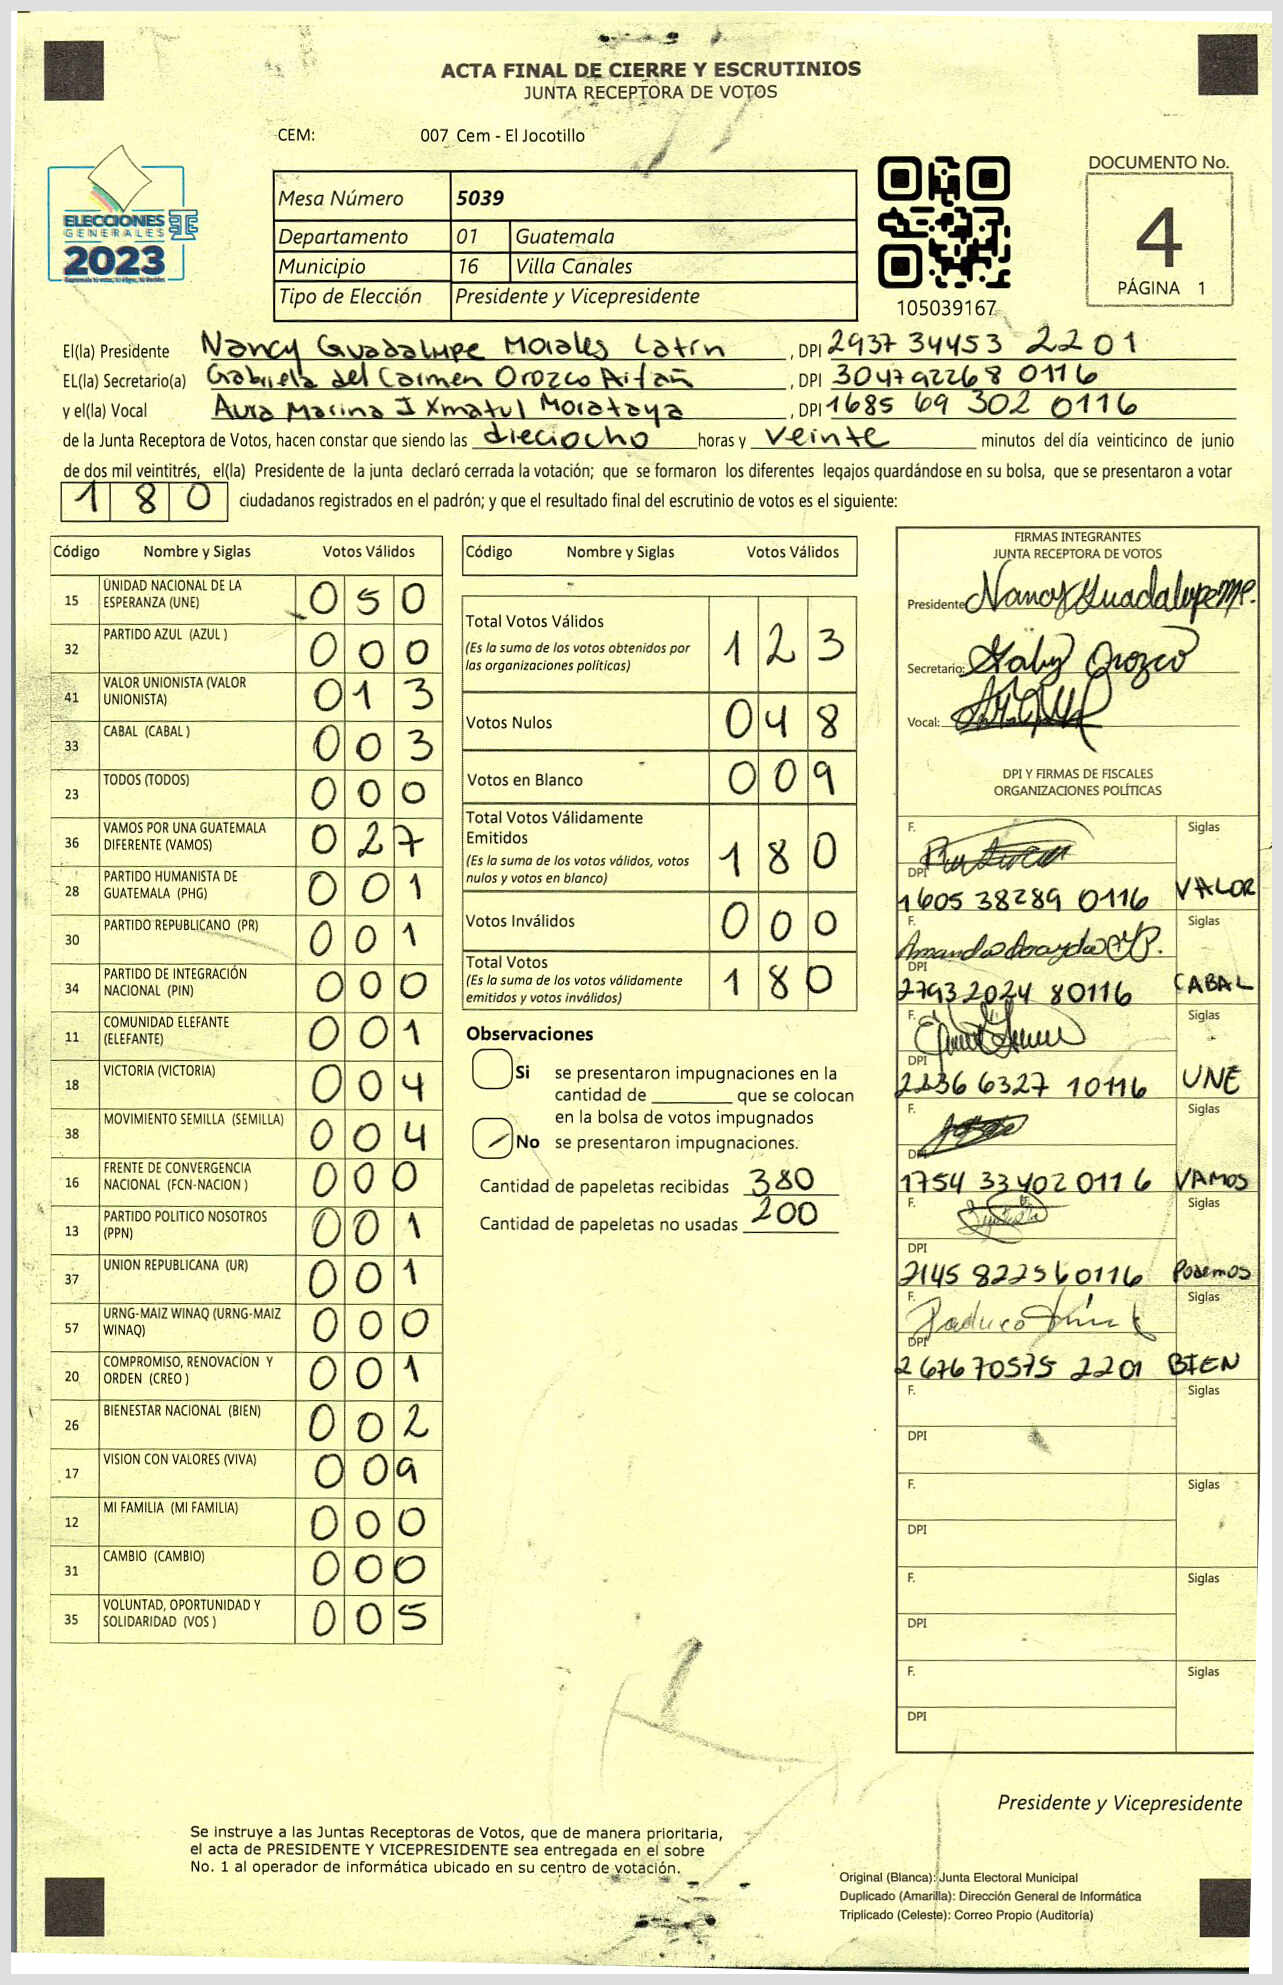 ACTA FINAL DE CIERRE Y ESCRUTINIOS
JUNTA RECEPTORA DE VOTOS
CEM: 007 Cem - El Jocotillo
ELECCIONES
GENERALES
2023
Mesa Número 5039
Departamento 01 Guatemala
Municipio 16 Villa Canales
Tipo de Elección Presidente y Vicepresidente
105039167
DOCUMENTO No.
4
PÁGINA 1
El(la) Presidente Nancy Guadalupe Morales Latin , DPI 2937 34453 2201
EL(la) Secretario(a) Gabriela del Carmen Orozco , DPI 304792268 0116
y el(la) Vocal Aura Marina Ixmatul Morataya , DPI 1685 69 302 0116
de la Junta Receptora de Votos, hacen constar que siendo las dieciocho horas y veinte minutos del día veinticinco de junio
de dos mil veintitrés, el(la) Presidente de la junta declaró cerrada la votación; que se formaron los diferentes legajos guardándose en su bolsa, que se presentaron a votar
180 ciudadanos registrados en el padrón; y que el resultado final del escrutinio de votos es el siguiente:
Código Nombre y Siglas Votos Válidos
15 UNIDAD NACIONAL DE LA ESPERANZA (UNE) 050
32 PARTIDO AZUL (AZUL ) 000
41 VALOR UNIONISTA (VALOR UNIONISTA) 013
33 CABAL (CABAL ) 003
23 TODOS (TODOS) 000
36 VAMOS POR UNA GUATEMALA DIFERENTE (VAMOS) 027
28 PARTIDO HUMANISTA DE GUATEMALA (PHG) 001
30 PARTIDO REPUBLICANO (PR) 001
34 PARTIDO DE INTEGRACIÓN NACIONAL (PIN) 000
11 COMUNIDAD ELEFANTE (ELEFANTE) 001
18 VICTORIA (VICTORIA) 004
38 MOVIMIENTO SEMILLA (SEMILLA) 004
16 FRENTE DE CONVERGENCIA NACIONAL (FCN-NACION ) 000
13 PARTIDO POLITICO NOSOTROS (PPN) 001
37 UNION REPUBLICANA (UR) 001
57 URNG-MAIZ WINAQ (URNG-MAIZ WINAQ) 000
20 COMPROMISO, RENOVACION Y ORDEN (CREO ) 001
26 BIENESTAR NACIONAL (BIEN) 002
17 VISION CON VALORES (VIVA) 009
12 MI FAMILIA (MI FAMILIA) 000
31 CAMBIO (CAMBIO) 000
35 VOLUNTAD, OPORTUNIDAD Y SOLIDARIDAD (VOS ) 005
Código Nombre y Siglas Votos Válidos
Total Votos Válidos 123
(Es la suma de los votos obtenidos por
las organizaciones políticas)
Votos Nulos 048
Votos en Blanco 009
Total Votos Válidamente
Emitidos 180
(Es la suma de los votos válidos, votos
nulos y votos en blanco)
Votos Inválidos 000
Total Votos 180
(Es la suma de los votos válidamente
emitidos y votos inválidos)
Observaciones
Si se presentaron impugnaciones en la
cantidad de ________ que se colocan
en la bolsa de votos impugnados
No se presentaron impugnaciones.
Cantidad de papeletas recibidas 380
Cantidad de papeletas no usadas 200
FIRMAS INTEGRANTES
JUNTA RECEPTORA DE VOTOS
Presidente: Nancy Guadalupe
Secretario: Gaby Orozco
Vocal:
DPI Y FIRMAS DE FISCALES
ORGANIZACIONES POLÍTICAS
F. Siglas
DPI
1605 38289 0116 VALOR
F. Siglas
DPI
2793 2024 80116 CABAL
F. Siglas
DPI
2236 6327 10116 UNE
F. Siglas
DPI
1754 33402 0116 VAMOS
F. Siglas
DPI
2145 82256 0116 Podemos
F. Siglas
DPI
2676 70575 2201 BIEN
F. Siglas
DPI
F. Siglas
DPI
F. Siglas
DPI
F. Siglas
DPI
Presidente y Vicepresidente
Se instruye a las Juntas Receptoras de Votos, que de manera prioritaria,
el acta de PRESIDENTE Y VICEPRESIDENTE sea entregada en el sobre
No. 1 al operador de informática ubicado en su centro de votación.
Original (Blanca): Junta Electoral Municipal
Duplicado (Amarilla): Dirección General de Informática
Triplicado (Celeste): Correo Propio (Auditoria)